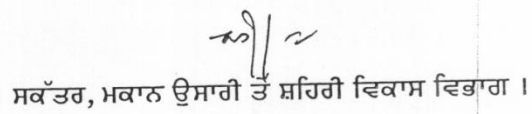 ਸਕੱਤਰ, ਮਕਾਨ ਉਸਾਰੀ ਤੇਂ ਸ਼ਹਿਰੀ ਵਿਕਾਸ ਵਿਭਾਗ ।